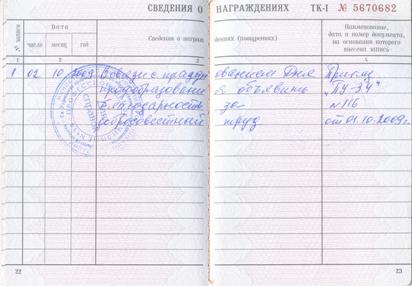 СВЕДЕНИЯ О НАГРАЖДЕНИЯХ ТК-I № 5670682
№ записи
Дата
число месяц год
Сведения о награждениях (поощрениях)
Наименование, дата и номер документа, на основании которого внесена запись
1 2 3 4
1 02 10 2009 В связи с празднованием Дня Приказ
профобразования объявить "ПУ-34"
благодарность за №116
добросовестный труд от 01.10.2009г.
22
23